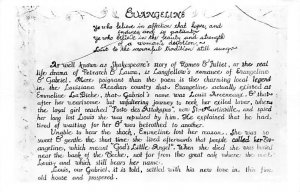 EVANGELINE
Ye who believe in affection that hopes, and
endures, and is patient,
Ye who believe in the beauty and strength
of a woman's devotion,
List to the mournful tradition still sung
As well known as Shakespeare's story of Romeo & Juliet, or the real
life drama of Petrarch & Laura, is Longfellow's romance of Evangeline
& Gabriel. More poignant than the poem is the charming local legend
in the Louisiana Acadian country that Evangeline actually existed as
Emmeline La Biche; that Gabriel's name was Louis Arceneaux; & that
after her wearisome but unfaltering journey to seek her exiled lover, when
the loyal girl reached "Poste des Attakapas", now St. Martinville, and spied
her long lost Louis she was repulsed by him. He explained that he had
tired of waiting for her & was betrothed to another.
Unable to bear the shock, Emmeline lost her reason. She was so
sweet & gentle the short time she lived afterwards that people called her Ev-
angeline, which means "God's Little Angel". When she died she was buried
near the bank of the Bayou, not far from the great oak where she met
Louis, and which still bears her name.
Louis, our Gabriel, it is told, settled with his new love in this fine
old house and prospered.